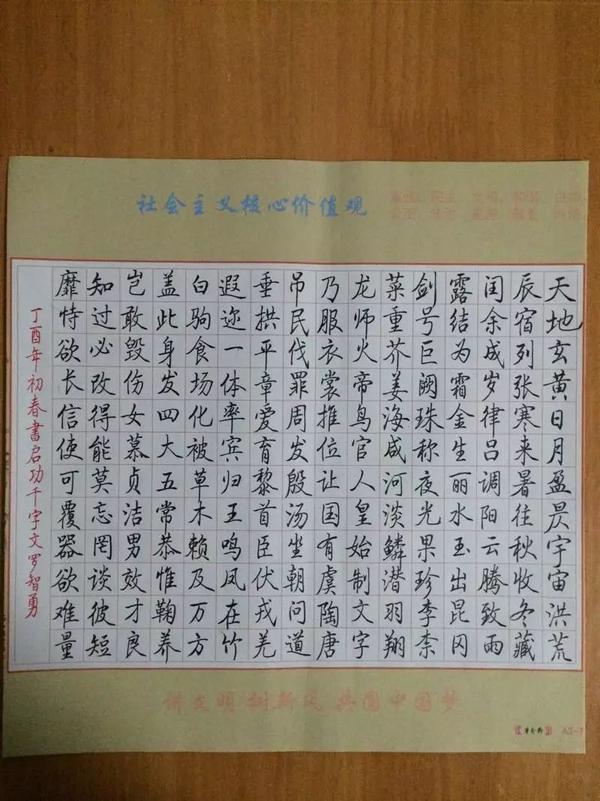 社会主义核心价值观
天地玄黄日月盈昃宇宙洪荒
辰宿列张寒来暑往秋收冬藏
闰余成岁律吕调阳云腾致雨
露结为霜金生丽水玉出昆冈
剑号巨阙珠称夜光果珍李柰
菜重芥姜海咸河淡鳞潜羽翔
龙师火帝鸟官人皇始制文字
乃服衣裳推位让国有虞陶唐
吊民伐罪周发殷汤坐朝问道
垂拱平章爱育黎首臣伏戎羌
遐迩一体率宾归王鸣凤在竹
白驹食场化被草木赖及万方
盖此身发四大五常恭惟鞠养
岂敢毁伤女慕贞洁男效才良
知过必改得能莫忘罔谈彼短
靡恃欲长信使可覆器欲难量
丁酉年初春書启功千字文罗智勇
讲文明 树新风 共圆中国梦